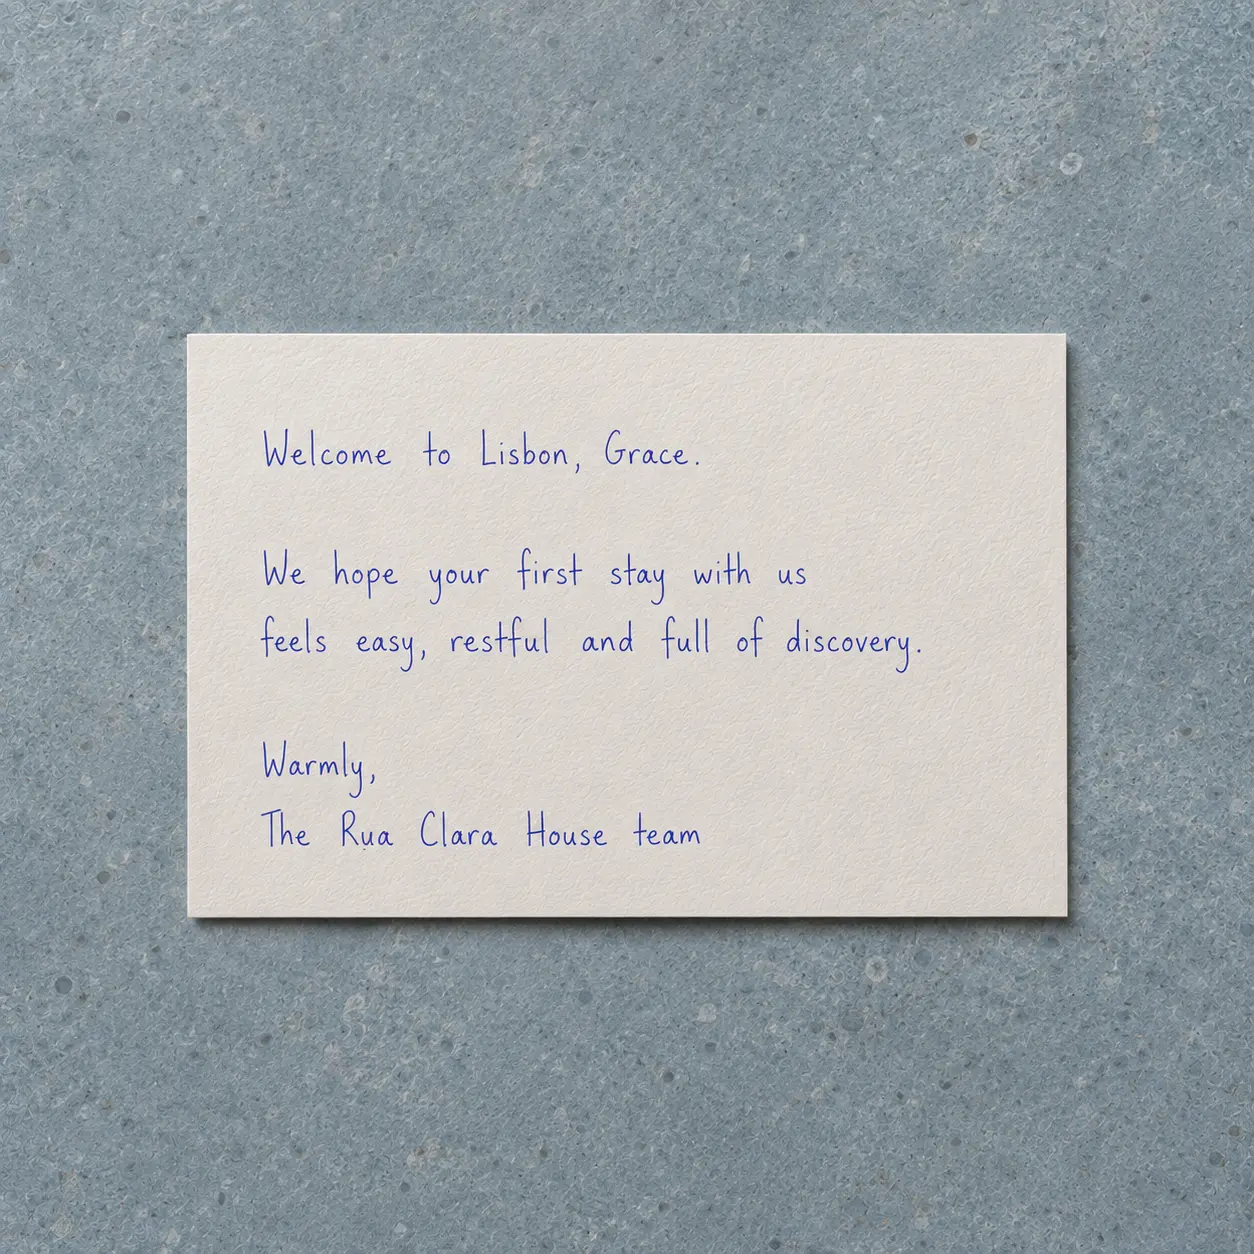 Welcome to Lisbon, Grace.
We hope your first stay with us
feels easy, restful and full of discovery.
Warmly,
The Rua Clara House team